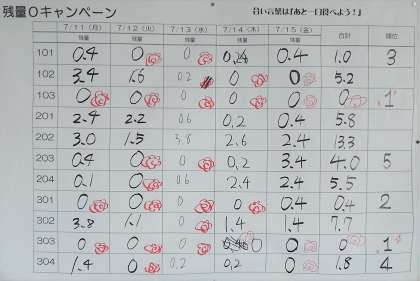 残量0キャンペーン 合い言葉は『あと一口食べよう！』
7/11(月) 7/12(火) 7/13(水) 7/14(木) 7/15(金) 合計 順位
残量 残量 残量 残量 残量
101 0.4 0 0 0.4 1.0 3
102 3.4 1.6 0.2 0 0 5.2
103 0 0 0 0 0 0 1
201 2.4 2.2 0.6 0.2 0.4 5.8
202 3.0 1.5 3.8 2.6 2.4 13.3
203 0.4 0 0 0.2 3.4 4.0 5
204 0.1 0 0.6 2.4 2.4 5.5
301 0 0 0 0 0.4 0.4 2
302 3.8 1.1 0 1.4 1.4 7.7
303 0 0 0 0 0 0 1
304 1.4 0 0.2 0.2 0 1.8 4